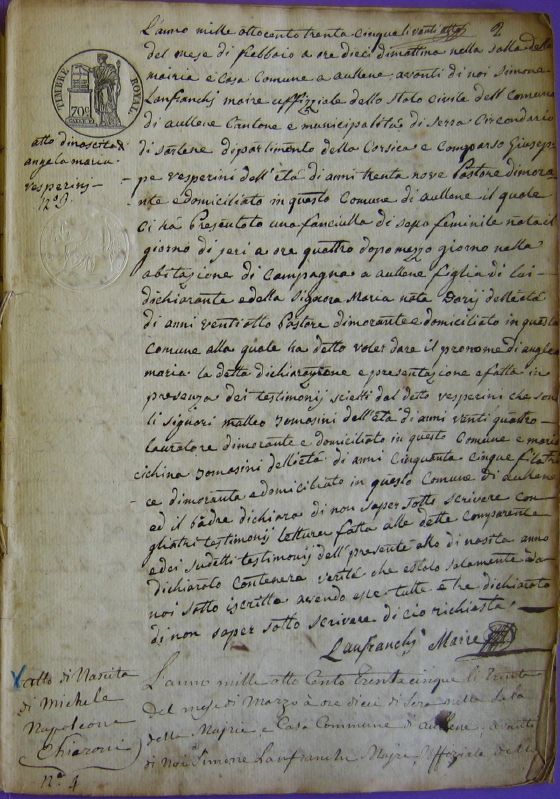 2
L'anno mille ottocento trenta cinque li venti otto
del mese di Febbraio a ore dieci di mattina nella salla della
mairia e Casa Comune a aullene, avanti di noi Simone
Lanfranchj maire uffizziale dello stato civile dell Comune
di aullene Cantone e municipalità di Serra Circondario
di sartene dipartimento della Corsica e comparso Giusep-
pe vesperini dell'età di anni trenta nove Pastore dimora
nte e domiciliato in questo Comune di aullene il quale
ci ha Presentato una fanciulla di sesso feminile nata il
giorno di jeri a ore quattro dopo mezzo giorno nella
abitazione di Campagna a aullene figlia di lui
dichiarante e della Signora Maria nata dell età
di anni ventiotto Pastore dimorante e domiciliato in questo
Comune alla quale ha detto voler dare il pronome di angla
maria la detta dichiarazione e presentazione a fatta in
presenza dei testimonij scielti dal detto vesperini che son
li signori matteo Tomasini dell'età di anni venti quattro
lauratore dimorante e domiciliato in questo Comune e maria
cichina Tomasini dell età di anni Cinquanta cinque filatri
ce dimorante e domiciliato in questo Comune di aullene
ed il Padre dichiara di non saper sotto scrivere con
gli altri testimonij lettura fatta alle dette comparente
e dei sudetti testimonij dell'presente atto di nasita anno
dichiarato contenere verità che e stato solamente da
noi sotto iscritto avendo essi tutte e tre dichiarato
di non saper sotto scrivere di cio richiesta,
Lanfranchj Maire
TIMBRE ROYAL
70 c
atto di nascita di
angela maria
vesperini
n° 3
atto di Nascita
di Michele
Napoleone
Chiaroni
n° 4
L'anno mille otto Cento trenta cinque li trenta
del mese di Marzo a ore dieci di Sera nella Sala
della Majrie e Casa Commune d'aullene, avanti
di Noi Simone Lanfranchi Majre, Uffiziale dello